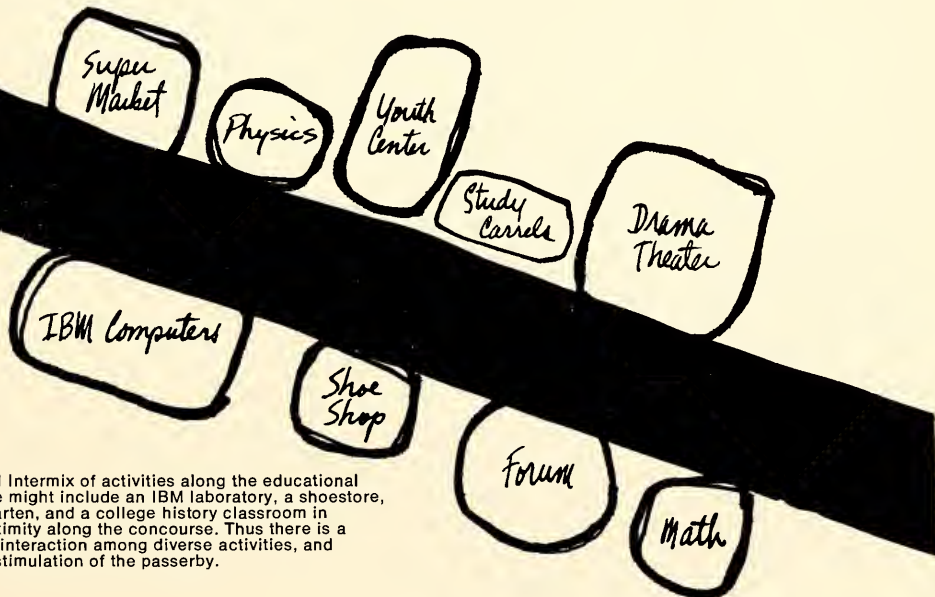 Super
Market
Physics
Youth
Center
Study
Carrels
Drama
Theater
IBM Computers
Shoe
Shop
Forum
Math
Intermix of activities along the educational
might include an IBM laboratory, a shoestore,
and a college history classroom in
along the concourse. Thus there is a
interaction among diverse activities, and
stimulation of the passerby.